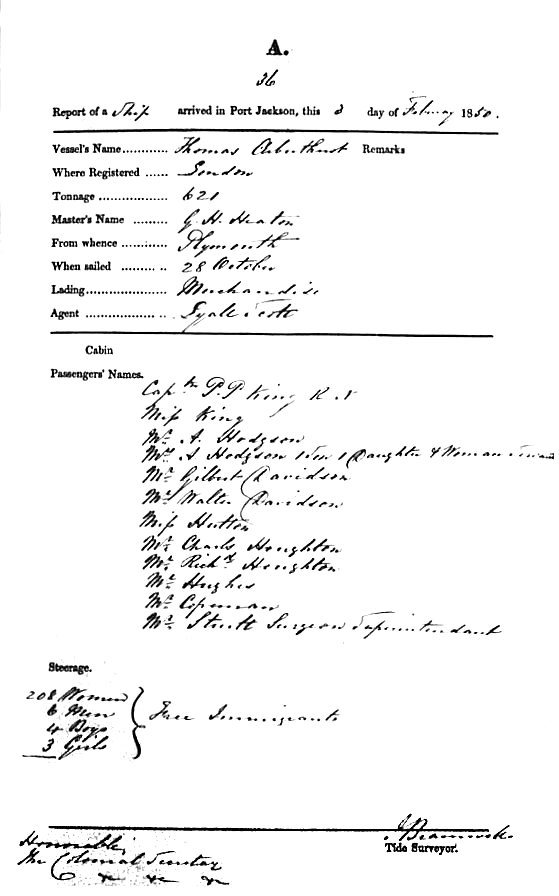 A.
36
Report of a Ship arrived in Port Jackson, this 3 day of February 1850.
Vessel's Name............ Thomas Arbuthnot Remarks
Where Registered ...... London
Tonnage .................. 621
Master's Name ......... G. H. Heaton
From whence ............ Plymouth
When sailed ........... 28 October
Lading..................... Merchandise
Agent ..................... Lyall Scott
Cabin
Passengers' Names.
Captn P. P. King R N
Miss King
Mr A. Hodgson
Mrs A Hodgson 1 Son 1 Daughter & Woman Servant
Mr Gilbert Davidson
Mr Walter Davidson
Miss Hutton
Mr Charles Houghton
Mr Richd Houghton
Mr Hughes
Mr Copman
Mr Strutt Surgeon Superintendant
Steerage.
208 Women
6 Men
4 Boys
3 Girls
Free Immigrants
Tide Surveyor.
Honorable
The Colonial Secretary
&c &c &c